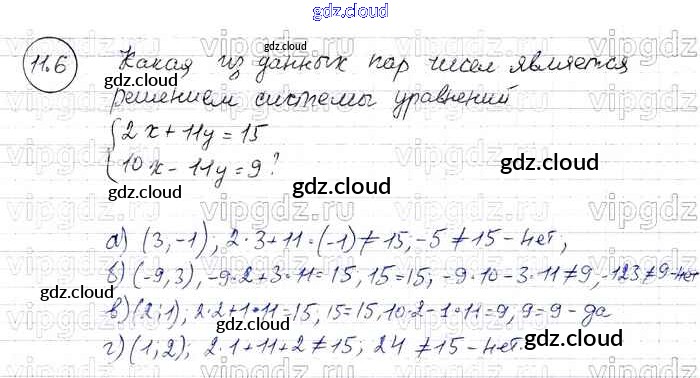 gdz.cloud
11.6 Какая из данных пар чисел является
решением системы уравнений
{2x+11y=15
{10x-11y=9?
а) (3,-1); 2·3+11·(-1)≠15,-5≠15-нет;
б) (-9,3), -9·2+3·11=15, 15=15; -9·10-3·11≠9, -123≠9-нет
в) (2;1); 2·2+1·11=15, 15=15, 10·2-1·11=9, 9=9-да
г) (1;2); 2·1+11+2≠15; 24≠15-нет.
gdz.cloud
gdz.cloud
gdz.cloud
gdz.cloud
gdz.cloud
gdz.cloud
gdz.cloud
gdz.cloud
gdz.cloud
gdz.cloud
vipgdz.ru
vipgdz.ru
vipgdz.ru